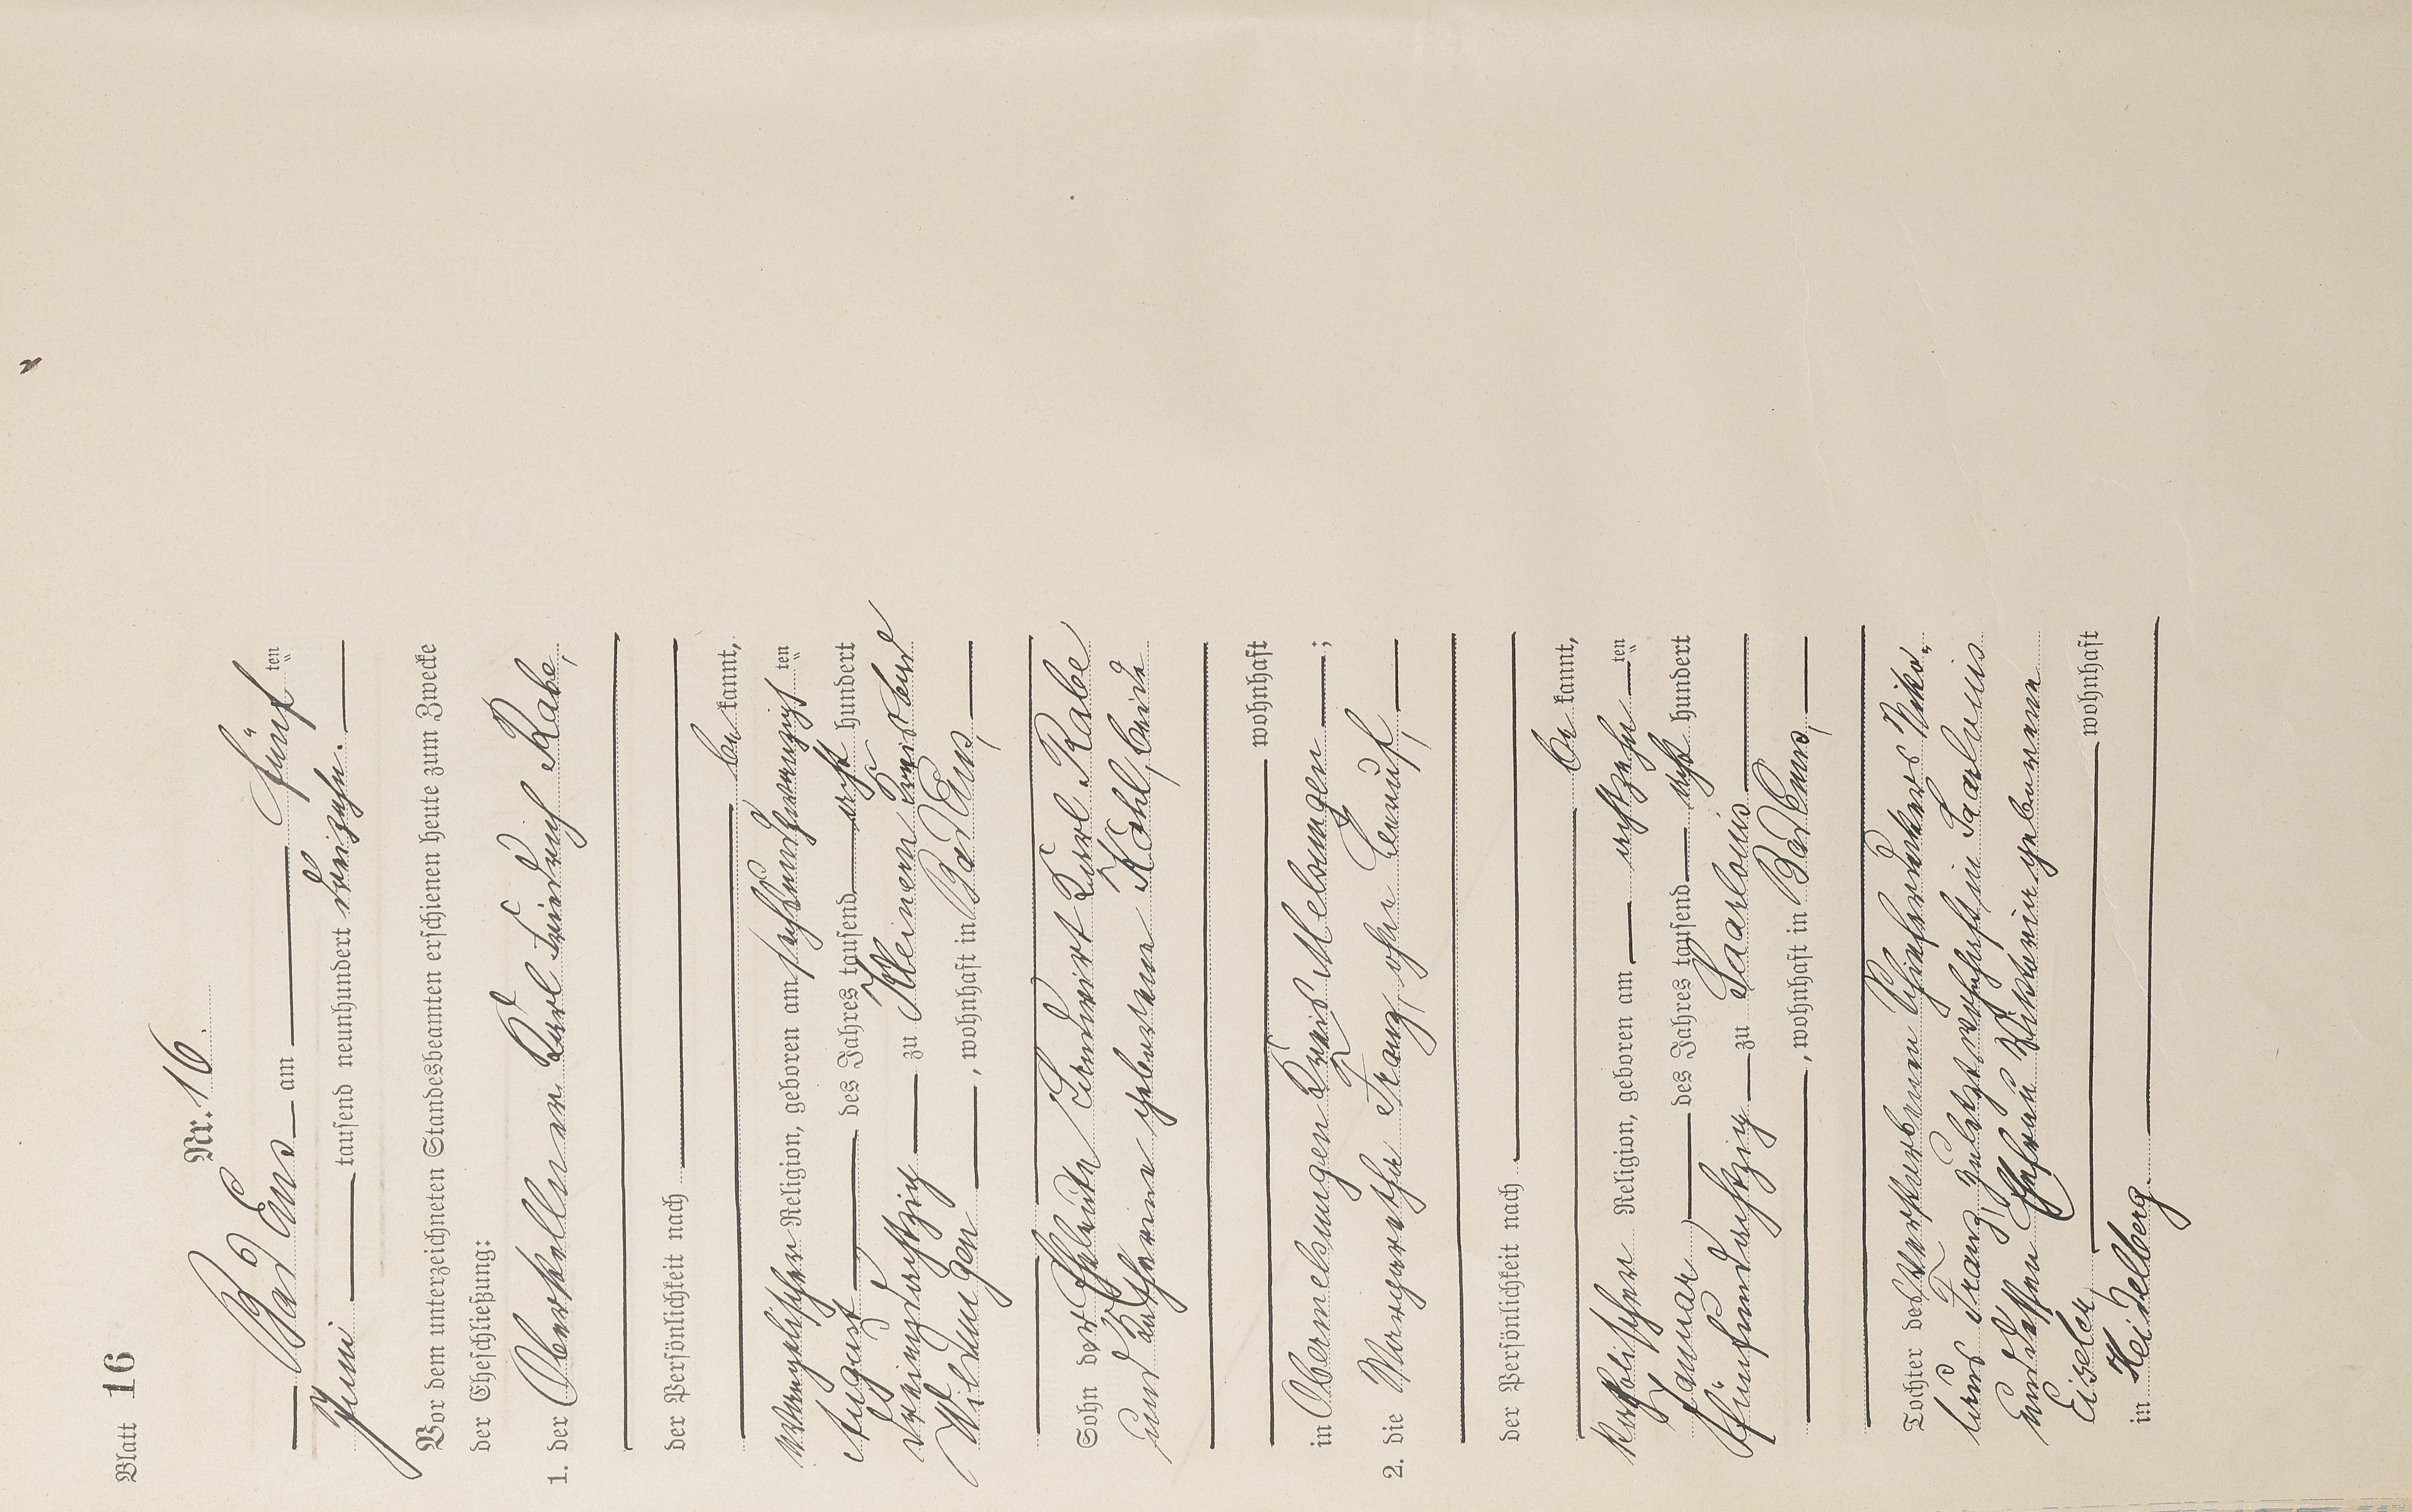 Blatt 16
Nr. 16.
Bad Ems am fünften
Juni tausend neunhundert dreizehn.
Vor dem unterzeichneten Standesbeamten erschienen heute zum Zwecke
der Eheschließung:
1. der Oberkellner Karl Friedrich Rabe,
der Persönlichkeit nach
be kannt,
evangelischer Religion, geboren am sechsundzwanzigsten
August des Jahres tausend acht hundert
dreiundachtzig zu Kleinern Kreis der
Wildungen, wohnhaft in Bad Ems,
Sohn der Eheleute Karl Rabe
und Katharine geborene Köhl, beide
wohnhaft
in Obermelsungen Kreis Melsungen;
2. die Margarethe Franz, ohne Beruf,
der Persönlichkeit nach
be kannt,
katholischer Religion, geboren am achtzehnten
Januar des Jahres tausend acht hundert
fünfundachtzig zu Saarlouis
, wohnhaft in Bad Ems,
Tochter des verstorbenen Niko-
laus Franz, zuletzt wohnhaft in Saarlouis
und dessen Ehefrau geborene
Eiseler, wohnhaft
in Heidelberg.